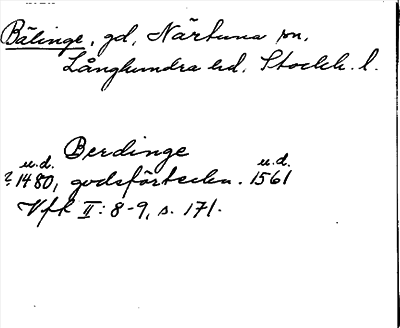 Bälinge, gd, Närtuna sn,
Långhundra hd. Stockh. l.
Berdinge
u.d. u.d.
? 1480, godsförteckn. 1561
Vfk II: 8-9, s. 171.